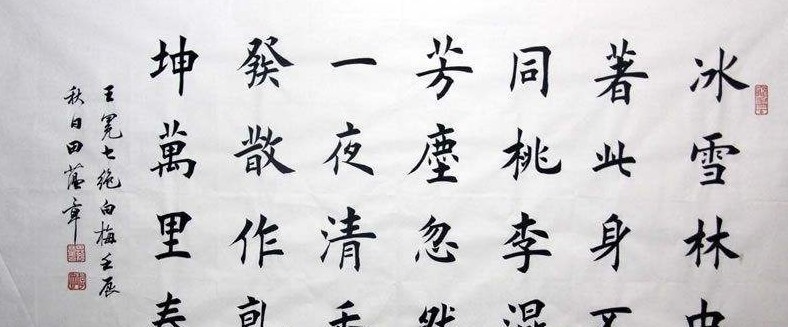 冰雪林中
著此身不
同桃李混
芳塵忽然
一夜清香
發散作乾
坤萬里春
王冕七絶白梅壬辰
秋日田蘊章